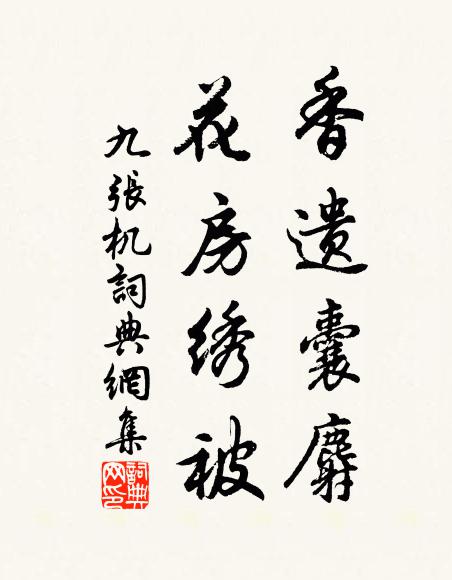 香遗囊麝
花房绣被
九張机詞典網集
詞典网印